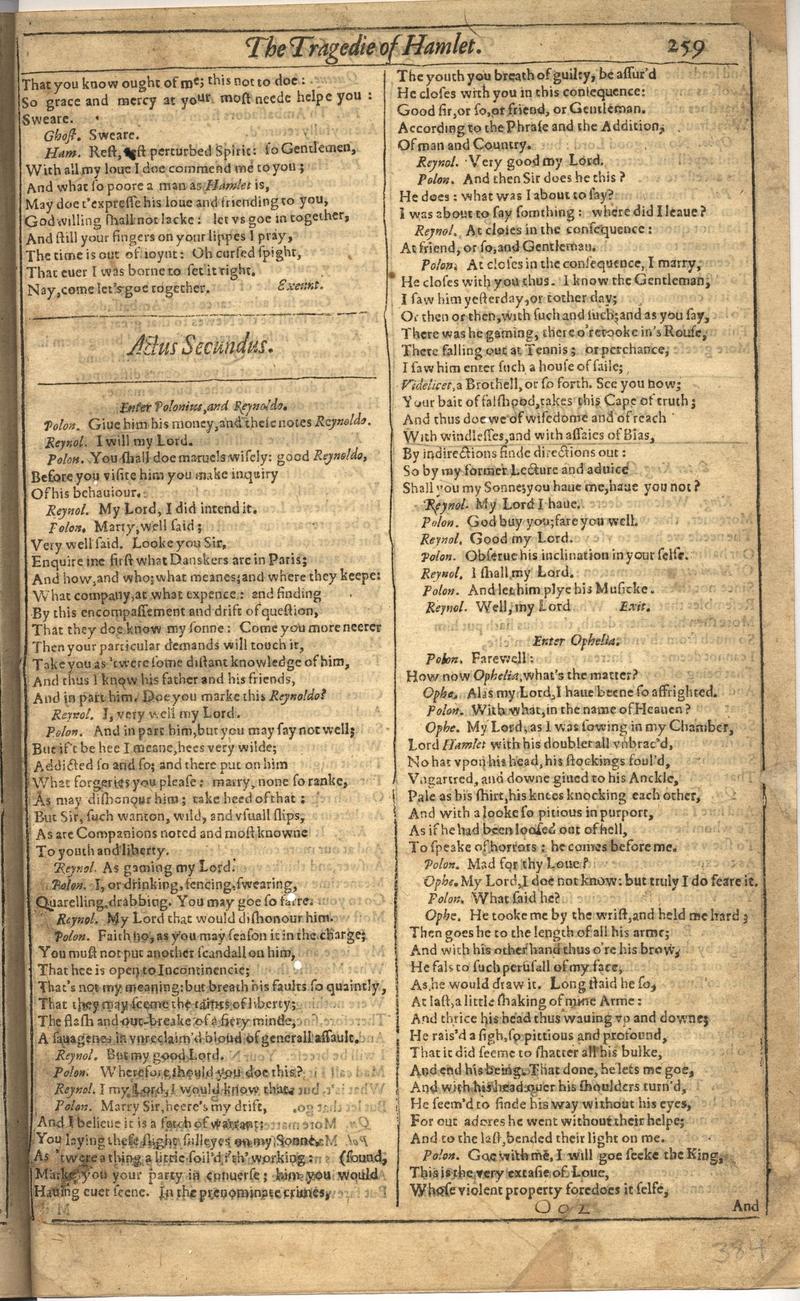 The Tragedie of Hamlet.
259
That you know ought of me; this not to doe:
So grace and mercy at your most neede helpe you:
Sweare.
Ghost. Sweare.
Ham. Rest, rest perturbed Spirit: so Gentlemen,
With all my loue I doe commend me to you;
And what so poore a man as Hamlet is,
May doe t'expresse his loue and friending to you,
God willing shall not lacke: let vs goe in together,
And still your fingers on your lippes I pray,
The time is out of ioynt: Oh cursed spight,
That euer I was borne to set it right.
Nay, come let's goe together. Exeunt.
Actus Secundus.
Enter Polonius, and Reynoldo.
Polon. Giue him his money, and these notes Reynoldo.
Reynol. I will my Lord.
Polon. You shall doe maruels wisely: good Reynoldo,
Before you visite him you make inquiry
Of his behauiour.
Reynol. My Lord, I did intend it.
Polon. Marry, well said;
Very well said. Looke you Sir,
Enquire me first what Danskers are in Paris;
And how, and who; what meanes; and where they keepe:
What company, at what expence: and finding
By this encompassement and drift of question,
That they doe know my sonne: Come you more neerer
Then your particular demands will touch it,
Take you as 'twere some distant knowledge of him,
And thus I know his father and his friends,
And in part him. Doe you marke this Reynoldo?
Reynol. I, very well my Lord.
Polon. And in part him, but you may say not well;
But if't be hee I meane, hees very wilde;
Addicted so and so; and there put on him
What forgeries you please: marry, none so ranke,
As may dishonour him; take heed of that:
But Sir, such wanton, wild, and vsuall slips,
As are Companions noted and most knowne
To youth and liberty.
Reynol. As gaming my Lord.
Polon. I, or drinking, fencing, swearing,
Quarelling, drabbing. You may goe so farre.
Reynol. My Lord that would dishonour him.
Polon. Faith no, as you may season it in the charge;
You must not put another scandall on him,
That hee is open to Incontinencie;
That's not my meaning: but breath his faults so quaintly,
That they may seeme the taints of liberty;
The flash and out-breake of a fiery minde,
A sauagenes in vnreclaim'd bloud of generall assault.
Reynol. But my good Lord.
Polon. Wherefore should you doe this?
Reynol. I my Lord, I would know that.
Polon. Marry Sir, heere's my drift,
And I belieue it is a fetch of warrant:
You laying these slight sulleyes on my Sonne,
As 'twere a thing a little soil'd i'th' working: (found,
Marke you your party in conuerse; him you would
Hauing euer seene. In the prenominate crimes,
The youth you breath of guilty, be assur'd
He closes with you in this consequence:
Good sir, or so, or friend, or Gentleman.
According to the Phrase and the Addition,
Of man and Country.
Reynol. Very good my Lord.
Polon. And then Sir does he this?
He does: what was I about to say?
I was about to say somthing: where did I leaue?
Reynol. At closes in the consequence:
At friend, or so, and Gentleman.
Polon. At closes in the consequence, I marry,
He closes with you thus. I know the Gentleman,
I saw him yesterday, or tother day;
Or then or then, with such and such; and as you say,
There was he gaming, there o'retooke in's Rouse,
There falling out at Tennis; or perchance,
I saw him enter such a house of saile;
Videlicet, a Brothell, or so forth. See you now;
Your bait of falshood, takes this Cape of truth;
And thus doe we of wisedome and of reach
With windlesses, and with assaies of Bias,
By indirections finde directions out:
So by my former Lecture and aduice
Shall you my Sonne; you haue me, haue you not?
Reynol. My Lord I haue.
Polon. God buy you; fare you well.
Reynol. Good my Lord.
Polon. Obserue his inclination in your selfe.
Reynol. I shall my Lord.
Polon. And let him plye his Musicke.
Reynol. Well, my Lord Exit.
Enter Ophelia.
Polon. Farewell:
How now Ophelia, what's the matter?
Ophe. Alas my Lord, I haue beene so affrighted.
Polon. With what, in the name of Heauen?
Ophe. My Lord, as I was sowing in my Chamber,
Lord Hamlet with his doublet all vnbrac'd,
No hat vpon his head, his stockings foul'd,
Vngartred, and downe giued to his Anckle,
Pale as his shirt, his knees knocking each other,
And with a looke so pitious in purport,
As if he had been loosed out of hell,
To speake of horrors: he comes before me.
Polon. Mad for thy Loue?
Ophe. My Lord, I doe not know: but truly I do feare it.
Polon. What said he?
Ophe. He tooke me by the wrist, and held me hard;
Then goes he to the length of all his arme;
And with his other hand thus o're his brow,
He fals to such perusall of my face,
As he would draw it. Long staid he so,
At last, a little shaking of mine Arme:
And thrice his head thus wauing vp and downe;
He rais'd a sigh, so pittious and profound,
That it did seeme to shatter all his bulke,
And end his being. That done, he lets me goe,
And with his head ouer his shoulders turn'd,
He seem'd to finde his way without his eyes,
For out adores he went without their helpe;
And to the last, bended their light on me.
Polon. Goe with me, I will goe seeke the King,
This is the very extasie of Loue,
Whose violent property foredoes it selfe,
Oo2
And
384